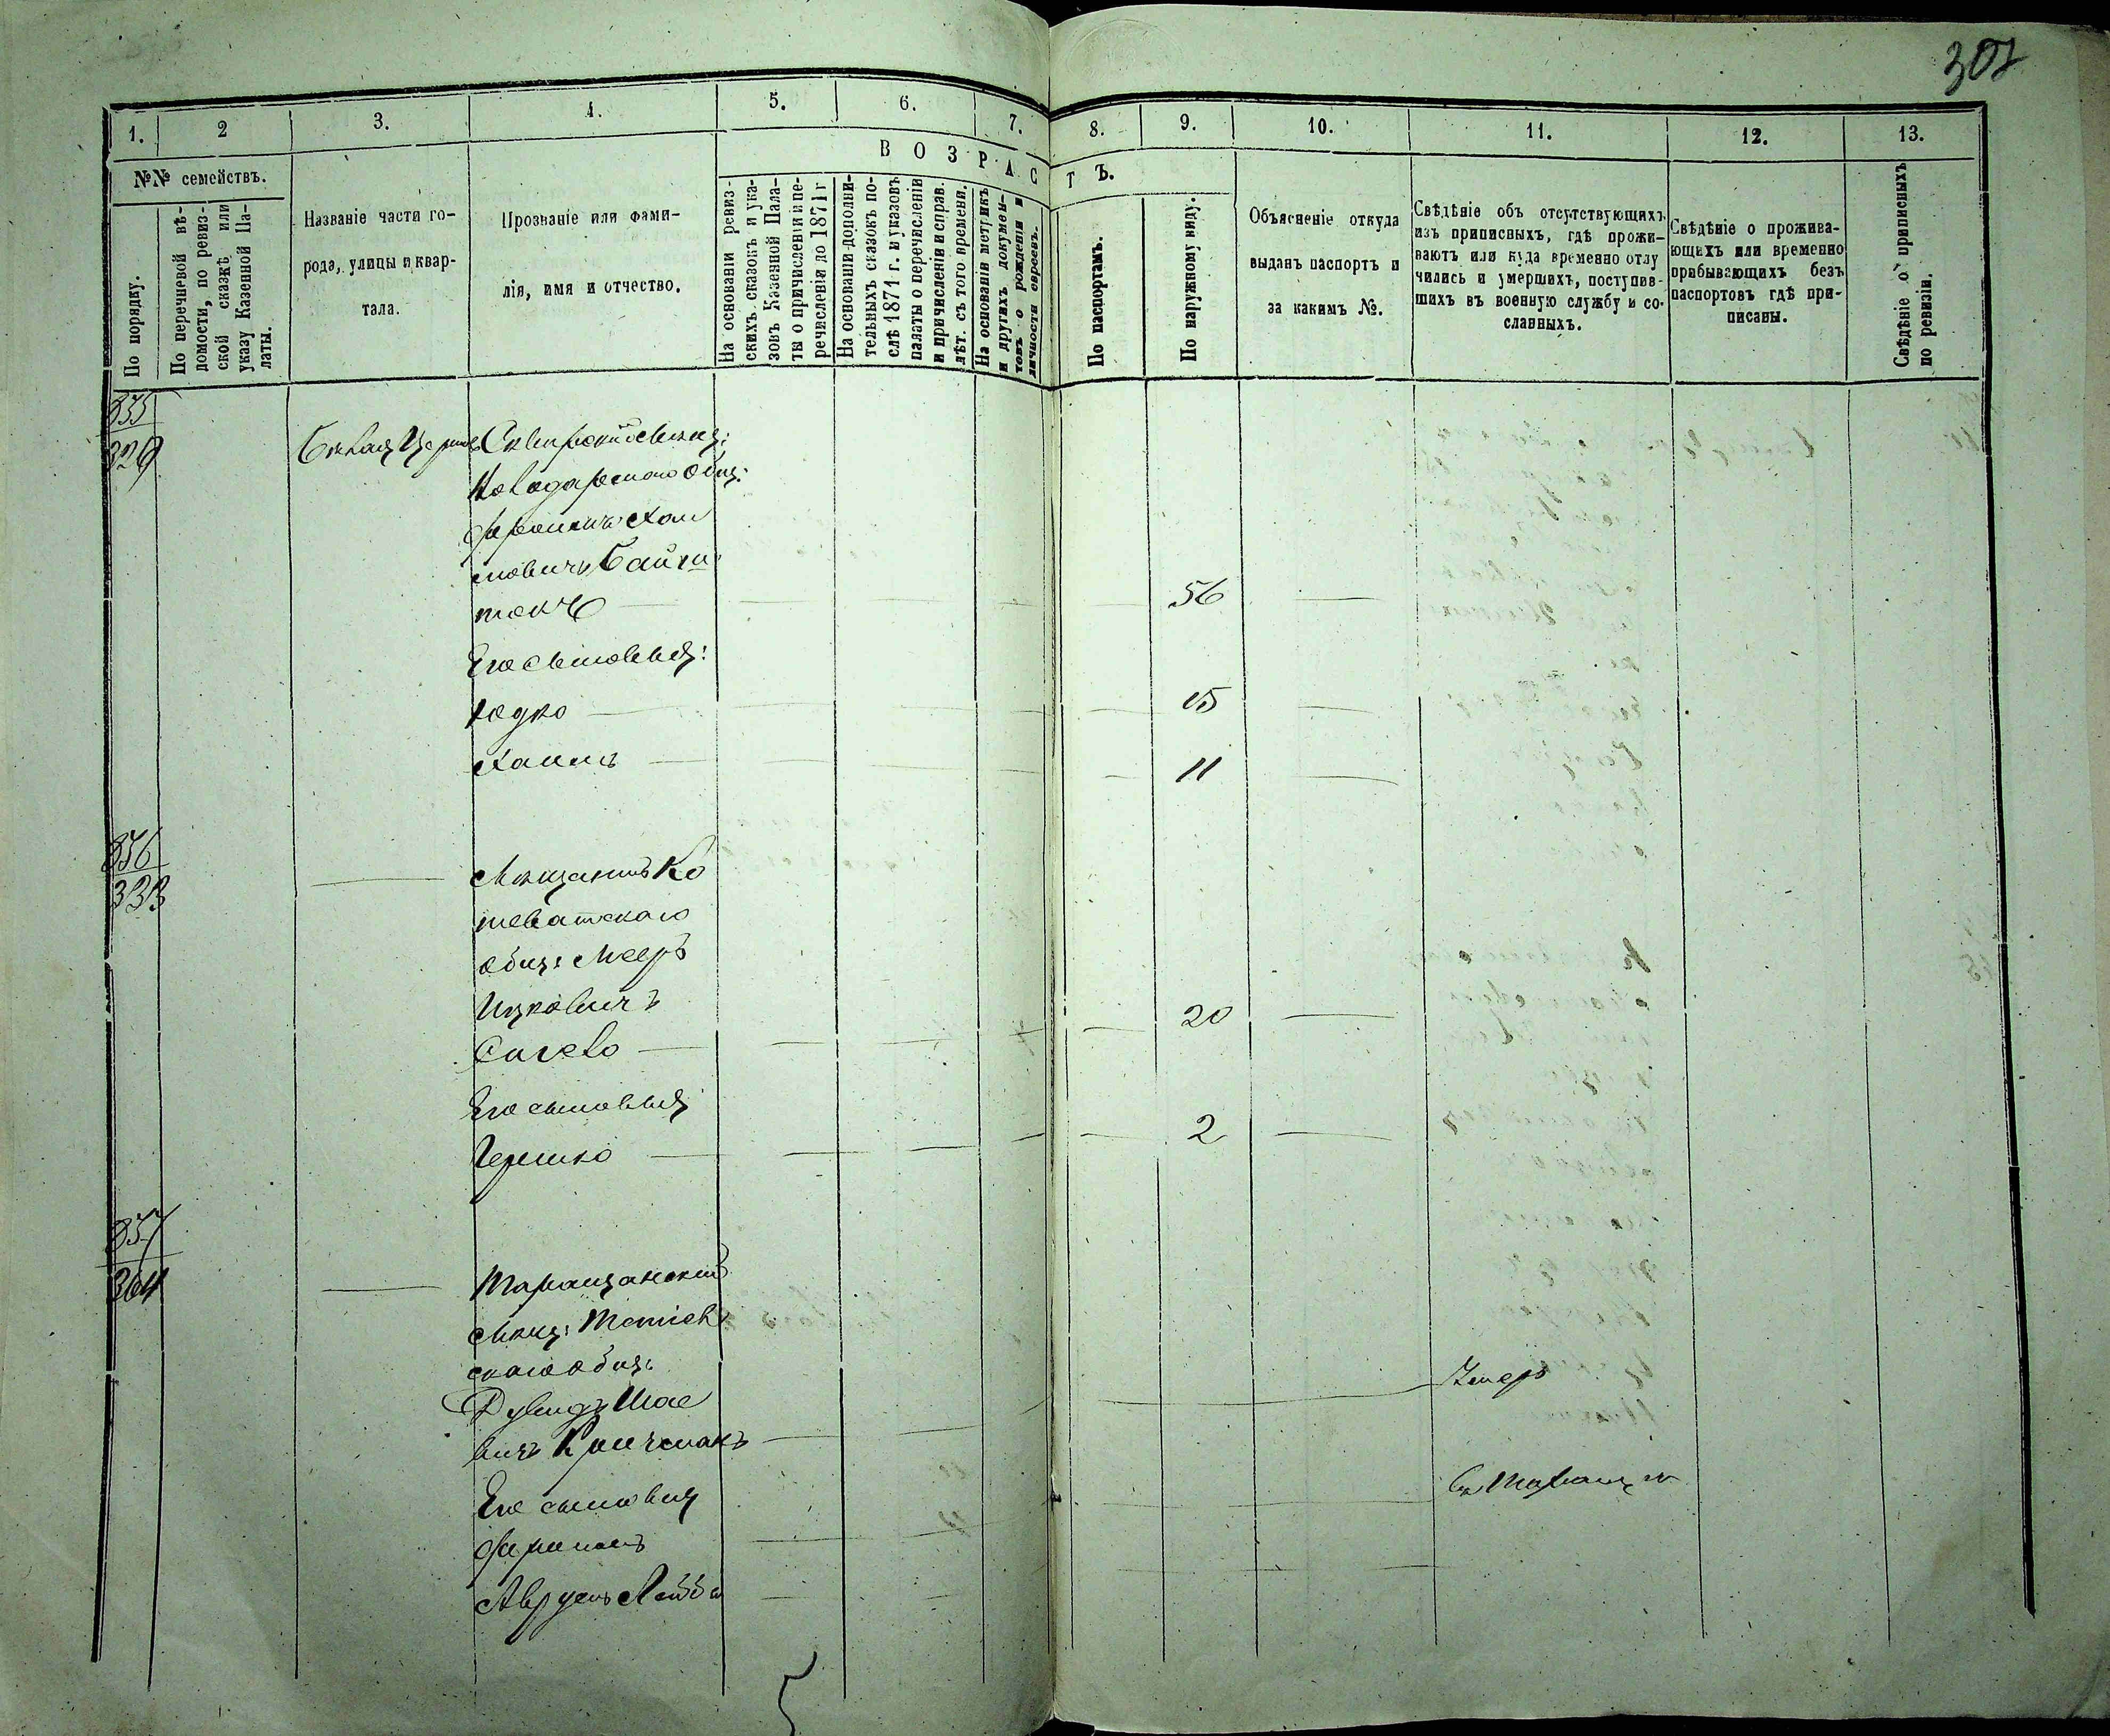 307
1.
2
3.
4.
5.
6.
7.
8.
9.
10.
11.
12.
13.
ВОЗРАСТЪ.
№№ семействъ.
По порядку.
По перечневой вѣ-
домости, по ревиз-
ской сказкѣ или
указу Казенной Па-
латы.
Названіе части го-
рода, улицы и квар-
тала.
Прозваніе или фами-
лія, имя и отчество.
На основаніи ревиз-
скихъ сказокъ и ука-
зовъ Казенной Пала-
ты о причисленій и пе-
речисленіи до 1871 г
На основаніи дополни-
тельныхъ сказокъ по-
слѣ 1871 г. и указовъ
палаты о перечисленіи
и причисленіи и справ.
лѣт. съ того времени.
На основаніи метрикъ
и другихъ докумен-
товъ о рожденіи и
личности евреевъ.
По паспортамъ.
По наружному виду.
Объясненіе откуда
выданъ паспортъ и
за какимъ №.
Свѣдѣніе объ отсутствующихъ
изъ приписныхъ, гдѣ прожи-
ваютъ или куда временно отлу
чились и умершихъ, поступив-
шихъ въ военную службу и со-
сланныхъ.
Свѣдѣніе о прожива-
ющихъ или временно
прибывающихъ безъ
паспортовъ гдѣ при-
писаны.
Свѣдѣніе о приписныхъ
по ревизіи.
835
329
Бѣлая Церковь Сквирскій мѣщ:
Новодарского общ:
Фроимъ Хаи
мовичъ
56
Его сыновья:
Іодко
15
Хаимъ
11
836
333
Мѣщанинъ Ко
шеватскаго
общ: Мееръ
Ицковичъ
20
Его сыновья
Гершко
2
837
364
Таращанскій
мѣщ: Тетіев
скаго общ:
Дувидъ Шае
вичъ
Умеръ
Его сыновья
Фроимъ
въ Таращѣ
Аврумъ Лейба